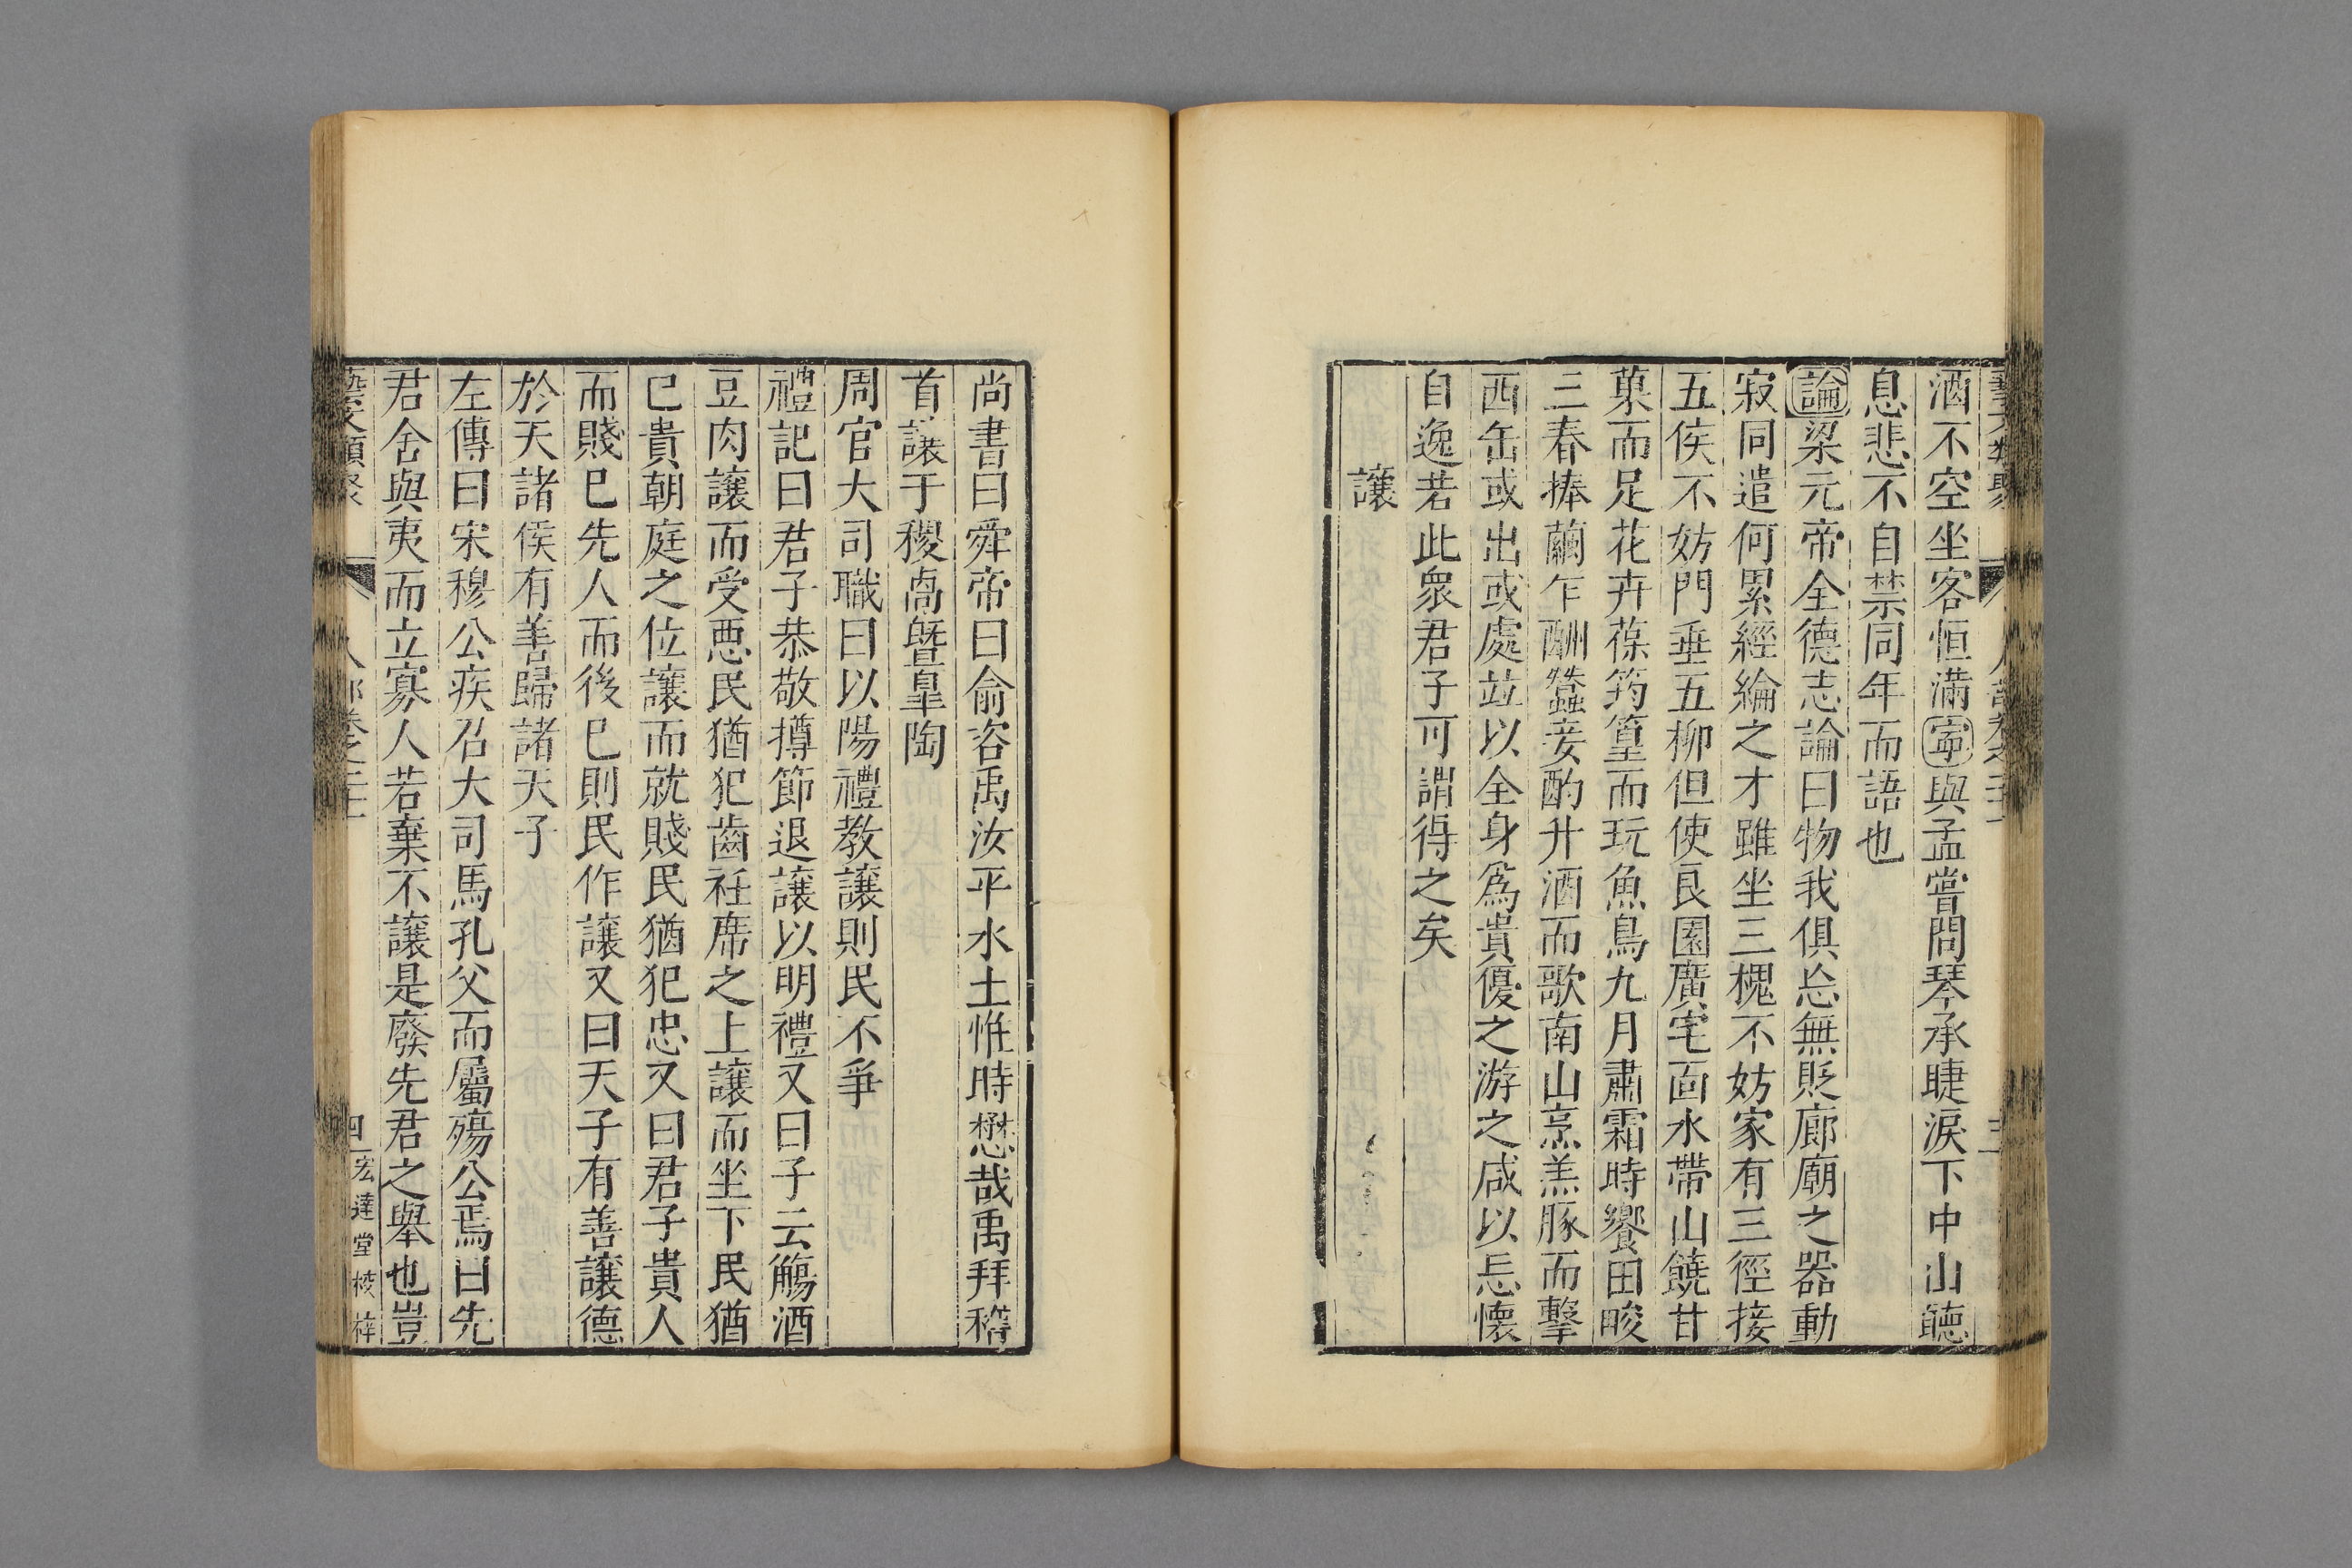 酒不空坐客恒滿寧與孟嘗問琴承睫淚下中山聽
息悲不自禁同年而語也
論梁元帝全德志論曰物我俱忘無貶廊廟之器動
寂同遣何累經綸之才雖坐三槐不妨家有三徑接
五侯不妨門垂五柳但使良園廣宅面水帶山饒甘
菓而足花卉葆筠篁而玩魚鳥九月肅霜時饗田畯
三春捧繭乍酬蠶妾酌升酒而歌南山烹羔豚而擊
西缶或出或處竝以全身爲貴優之游之咸以忘懷
自逸若此衆君子可謂得之矣
讓
尚書曰舜帝曰俞咨禹汝平水土惟時懋哉禹拜稽
首讓于稷卨曁皐陶
周官大司職曰以陽禮教讓則民不爭
禮記曰君子恭敬撙節退讓以明禮又曰子云觴酒
豆肉讓而受惡民猶犯齒衽席之上讓而坐下民猶
已貴朝庭之位讓而就賤民猶犯忠又曰君子貴人
而賤已先人而後已則民作讓又曰天子有善讓德
於天諸侯有善歸諸天子
左傳曰宋穆公疾召大司馬孔父而屬殤公焉曰先
君舍與夷而立寡人若棄不讓是廢先君之舉也豈
藝文類聚 人部卷之二十一 四 宏達堂校梓